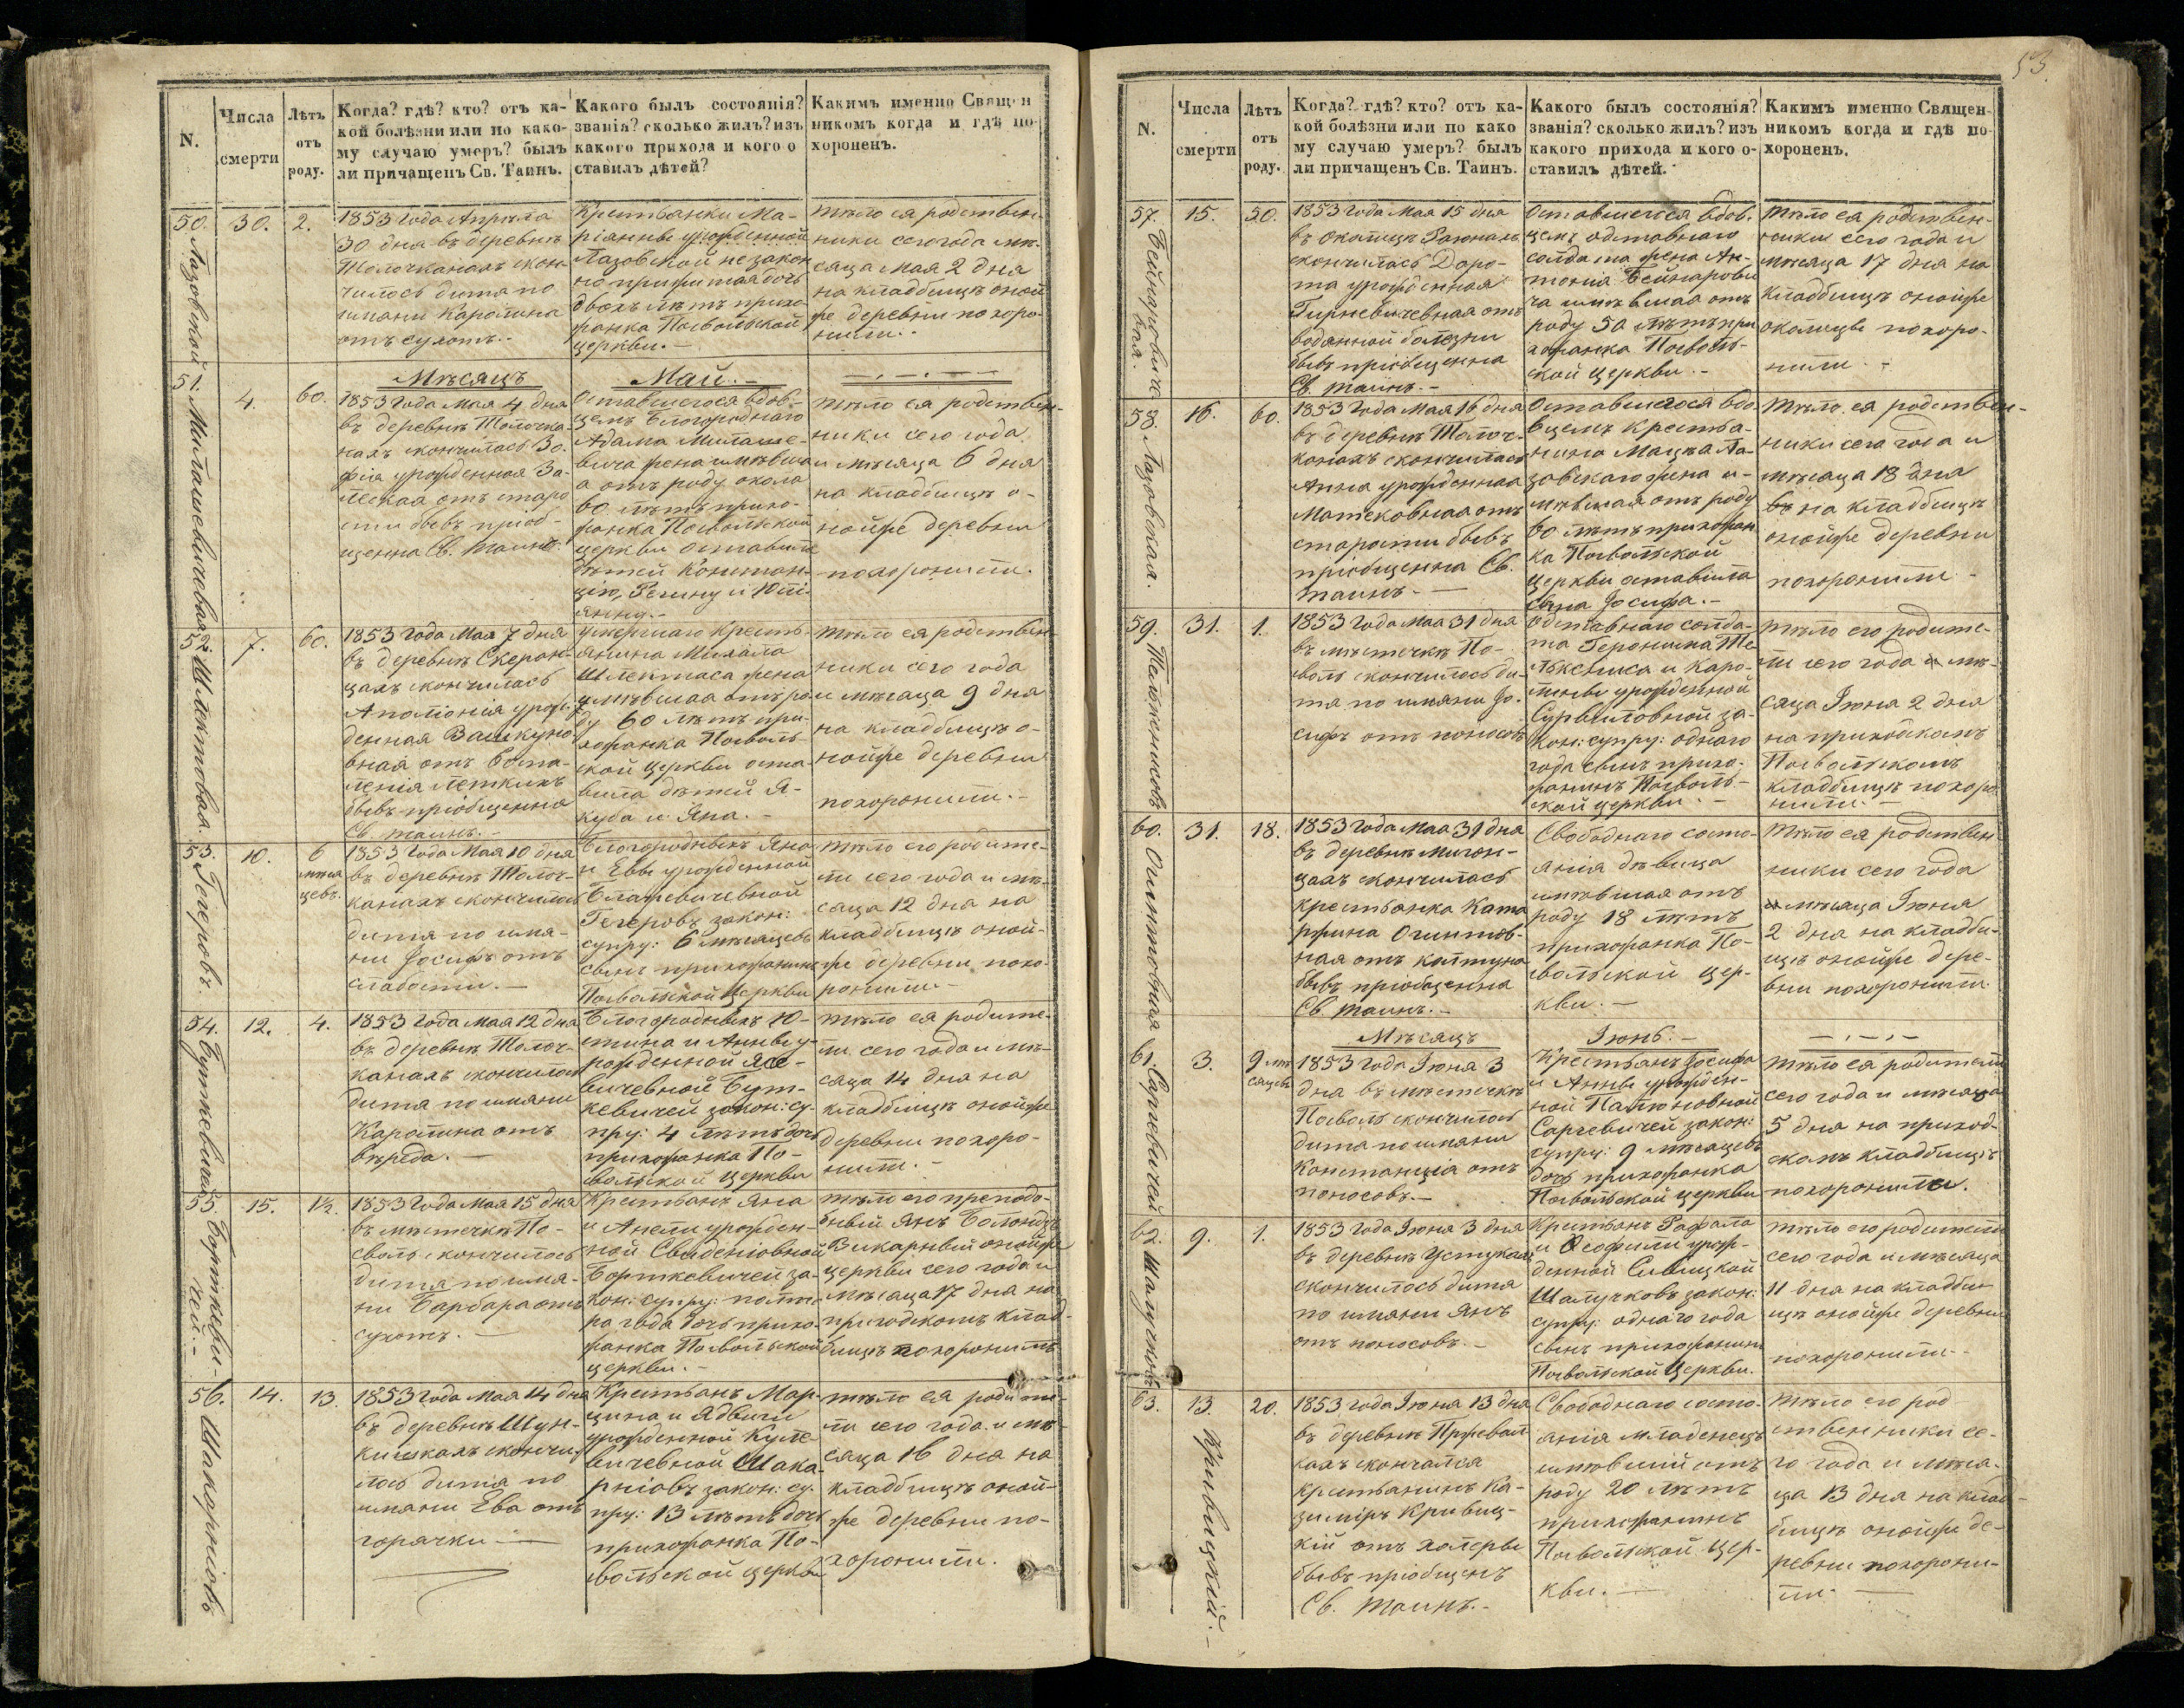 53.
N.
Числа
смерти
Лѣтъ
отъ
роду.
Когда? гдѣ? кто? отъ ка-
кой болѣзни или по како-
му случаю умеръ? былъ
ли причащенъ Св. Таинъ.
Какого былъ состоянія?
званія? сколько жилъ? изъ
какого прихода и кого о
ставилъ дѣтей?
Какимъ именно Священ
никомъ когда и гдѣ по-
хороненъ.
50.
Лазовской
30.
2.
1853 года Апрѣля
30 дня въ деревнѣ
Толочканахъ скон-
чилось дитя по
имяни Каролина
отъ сухотъ.
Крестьянки Ма-
ріянны урожденной
Лазовской незакон
но прижитая дочь
двохъ лѣтъ прихо-
жанка Посвольской
церкви.
Тѣло ея родствен-
ники сего года мѣ-
сяца Мая 2 дня
на кладбищѣ оной
же деревни похоро-
нили.
Мѣсяцъ
Май.
51.
Милашевичевая
4.
60.
1853 года Мая 4 дня
въ деревнѣ Толочка-
нахъ скончилась Зо-
фія урожденная За-
леская отъ старо
сти бывъ пріоб-
щенна Св. Таинъ.
Оставшегося вдов-
цемъ Благороднаго
Адама Милаше-
вича жена имѣвша
я отъ роду окола
60 лѣтъ прихо-
жанка Посвольской
церкви оставила
дѣтей Констан-
цію, Регину и Юлі-
янну.
Тѣло ея родствен-
ники сего года
и мѣсяца 6 дня
на кладбищѣ о-
нойже деревни
похоронили.
52.
Шлектовая.
7.
60.
1853 года Мая 7 дня
въ деревнѣ Скеран-
цахъ скончилась
Аполіонія урож-
денная Вашкуно
вная отъ воспа-
ленія легкихъ
бывъ пріобщенна
Св. Таинъ.
Умершаго кресть-
янина Михаила
Шлектаса жена
имѣвшая отъ ро
ду 60 лѣтъ при-
хожанка Посволь-
ской церкви оста-
вила дѣтей Я-
куба и Яна.
Тѣло ея родствен
ники сего года
и мѣсяца 9 дня
на кладбищѣ о-
нойже деревни
похоронили.
53.
Гегеровъ.
10.
6
мѣся
цевъ.
1853 года Мая 10 дня
въ деревнѣ Толоч-
канахъ скончилось
дитя по имя-
ни Іосифъ отъ
слабости.
Благородныхъ Яна
и Евы урожденной
Блажевичевной
Гегеровъ закон:
супру: 6 мѣсяцевъ
сынъ прихожанинъ
Посвольской церкви
Тѣло его родите-
ли сего года и мѣ-
сяца 12 дня на
кладбищѣ оной-
же деревни похо-
ронили.
54.
Буткевичей
12.
4.
1853 года Мая 12 дня
въ деревнѣ Толоч-
канахъ скончилось
дитя по имяни
Каролина отъ
вереда.
Благородныхъ Ю-
стина и Анны у-
рожденной Ясе-
вичевной Бут-
кевичей закон: су-
пру: 4 лѣтъ дочь
прихожанка По-
свольской церкви
Тѣло ея родите-
ли сего года и мѣ-
сяца 14 дня на
кладбищѣ онойже
деревни похоро-
нили.
55.
Бурткеви-
чей.
15.
1½.
1853 года Мая 15 дня
въ мѣстечкѣ По-
сволѣ скончилось
дитя по имя-
ни Барбара отъ
сухотъ.
Крестьянъ Яна
и Анели урожден-
ной Свиденіовной
Борткевичей за-
кон: супру: полто-
ра года дочь прихо-
жанка Посвольской
церкви.
Тѣло его преподо-
бный Янъ
Викарный онойже
церкви сего года и
мѣсяца 17 дня на
приходскомъ клад-
бищѣ похоронилъ
56.
Шакарніовъ
14.
13.
1853 года Мая 14 дня
въ деревнѣ Шун-
кишкахъ скончи-
лось дитя по
имяни Ева отъ
горячки
Крестьянъ Мар-
цина и Ядвиги
урожденной Куле-
вичевной Шака-
рніовъ закон: су-
пру: 13 лѣтъ дочь
прихожанка По-
свольской церкви
Тѣло ея родите-
ли сего года и мѣ-
сяца 16 дня на
кладбищѣ оной-
же деревни по-
хоронили.
N.
Числа
смерти
Лѣтъ
отъ
роду.
Когда? гдѣ? кто? отъ ка-
кой болѣзни или по како
му случаю умеръ? былъ
ли причащенъ Св. Таинъ.
Какого былъ состоянія?
званія? сколько жилъ? изъ
какого прихода и кого о-
ставилъ дѣтей.
Какимъ именно Священ-
никомъ когда и гдѣ по-
хороненъ.
57.
Бейнаровиче
вая.
15.
50.
1853 года Мая 15 дня
въ околицѣ
скончилась Доро-
та урожденная
Гирневичевная отъ
водянной болезни
бывъ пріобщенна
Св. Таинъ.
Оставшегося вдов-
цемъ одставнаго
солдата жена Ан-
тонія Бейнарови
ча имѣвшая отъ
роду 50 лѣтъ при
хожанка Посволь-
ской церкви.
Тѣло ея родствен-
ники сего года и
мѣсяца 17 дня на
кладбищѣ онойже
околицы похоро-
нили.
58.
Лазовская.
16.
60.
1853 года Мая 16 дня
въ деревнѣ Толоч-
канахъ скончилась
Анна урожденная
Матековная отъ
старости бывъ
пріобщенна Св.
Таинъ.
Оставшегося вдо-
вцемъ крестья-
нина Мацѣя Ла-
зовскаго жена и-
мѣвшая отъ роду
60 лѣтъ прихожан
ка Посвольской
церкви оставила
сына Іосифа.
Тѣло ея родствен-
ники сего года и
мѣсяца 18 дня
на кладбищѣ
онойже деревни
похоронили.
59.
Телькснисовъ
31.
1.
1853 года Мая 31 дня
въ мѣстечкѣ По-
сволѣ скончилось ди-
тя по имяни Іо-
сифъ отъ поносовъ
Одставнаго солда-
та Геронима Те-
лькениса и Каро-
лины урожденной
Сурвиловной за-
кон: супру: однаго
года сынъ прихо-
жанинъ Посволь-
ской церкви.
Тѣло его родите-
ли сего года и мѣ-
сяца Іюня 2 дня
на приходскомъ
Посвольскомъ
кладбищѣ похоро
нили.
60.
Огинтовная
31.
18.
1853 года Мая 31 дня
въ деревнѣ Мигон-
цахъ скончилась
крестьянка Ката
ржина Огинтов-
ная отъ колтуна
бывъ пріобщенна
Св Таинъ.
Свободнаго состо-
янія дѣвица
имѣвшая отъ
роду 18 лѣтъ
прихожанка По-
свольской цер-
кви.
Тѣло ея родствен
ники сего года
и мѣсяца Іюня
2 дня на кладби-
щѣ онойже дере-
вни похоронили.
Мѣсяцъ
Іюнь.
61.
Саргевичей
3.
9 мѣ
сяцевъ
1853 года Іюня 3
дня въ мѣстечкѣ
Посволѣ скончилось
дитя по имяни
Констанція отъ
поносовъ.
Крестьянъ Іосифа
и Анны урожден-
ной Палюновной
Саргевичей закон:
супру: 9 мѣсяцевъ
дочь прихожанка
Посвольской церкви
Тѣло ея родители
сего года и мѣсяца
5 дня на приход-
скомъ кладбищѣ
похоронили.
62.
Шалучковъ
9.
1.
1853 года Іюня 3 дня
въ деревнѣ Устукахъ
скончилось дитя
по имяни Янъ
отъ поносовъ.
Крестьянъ Рафала
и Ѳеофили урож-
денной Сивицкой
Шалучковъ закон:
супру: однаго года
сынъ прихожанинъ
Посвольской Церкви.
Тѣло его родители
сего года и мѣсяца
11 дня на кладби-
щѣ онойже деревни
похоронили.
63.
Кривицкій.
13.
20.
1853 года Іюня 13 дня
въ деревнѣ Пржевал
кахъ скончался
крестьянинъ Ка-
зиміръ Кривиц-
кій отъ холеры
бывъ пріобщенъ
Св. Таинъ.
Свободнаго состо-
янія младенецъ
имѣвшій отъ
роду 20 лѣтъ
прихожанинъ
Посвольской цер-
кви.
Тѣло его род
ственники се-
го года и мѣся-
ца 13 дня на клад-
бищѣ онойже де-
ревни похорони-
ли.